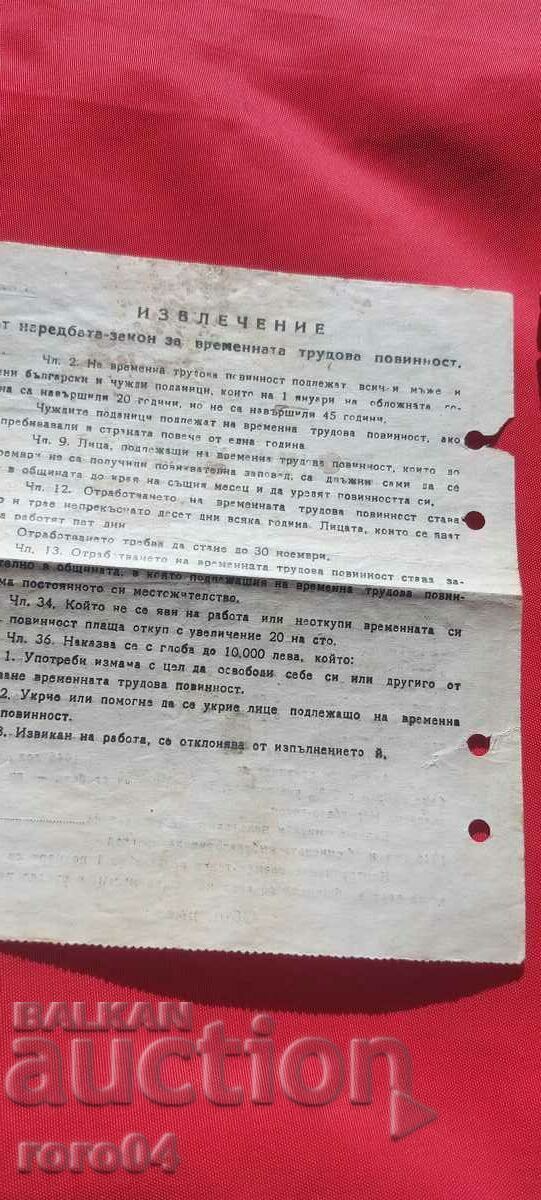 ИЗВЛЕЧЕНИЕ
т наредбата-закон за временната трудова повинност.
Чл. 2. На временна трудова повинност подлежат всички мъже и
ени български и чужди поданици, които на 1 януари на обложната го-
на са навършили 20 години, но не са навършили 45 години.
Чуждите поданици подлежат на временна трудова повинност, ако
пребивавали в страната повече от една година
Чл. 9. Лица, подлежащи на временна трудова повинност, които до
оември не са получили повиквателна заповед, са длъжни сами да се
в общината до края на същия месец и да уредят повинността си.
Чл. 12. Отработчането на временната трудова повинност става
о и трае непрекъснато десет дни всяка година. Лицата, които се явят
а работят пет дни
Отработването трябва да стане до 30 ноември.
Чл. 13. Отработването на временната трудова повинност става за-
телно в общината, в която подлежащия на временна трудова повин-
ма постоянното си местожителство.
Чл. 34. Който не се яви на работа или неоткупи временната си
повинност плаща откуп с увеличение 20 на сто.
Чл. 36. Наказва се с глоба до 10,000 лева, който:
1. Употреби измама с цел да освободи себе си или другиго от
ване временната трудова повинност.
2. Укрие или помогне да се укрие лице подлежащо на временна
повинност.
3. Извикан на работа, се отклонява от изпълнението й.
BALKAN
auction
roro04